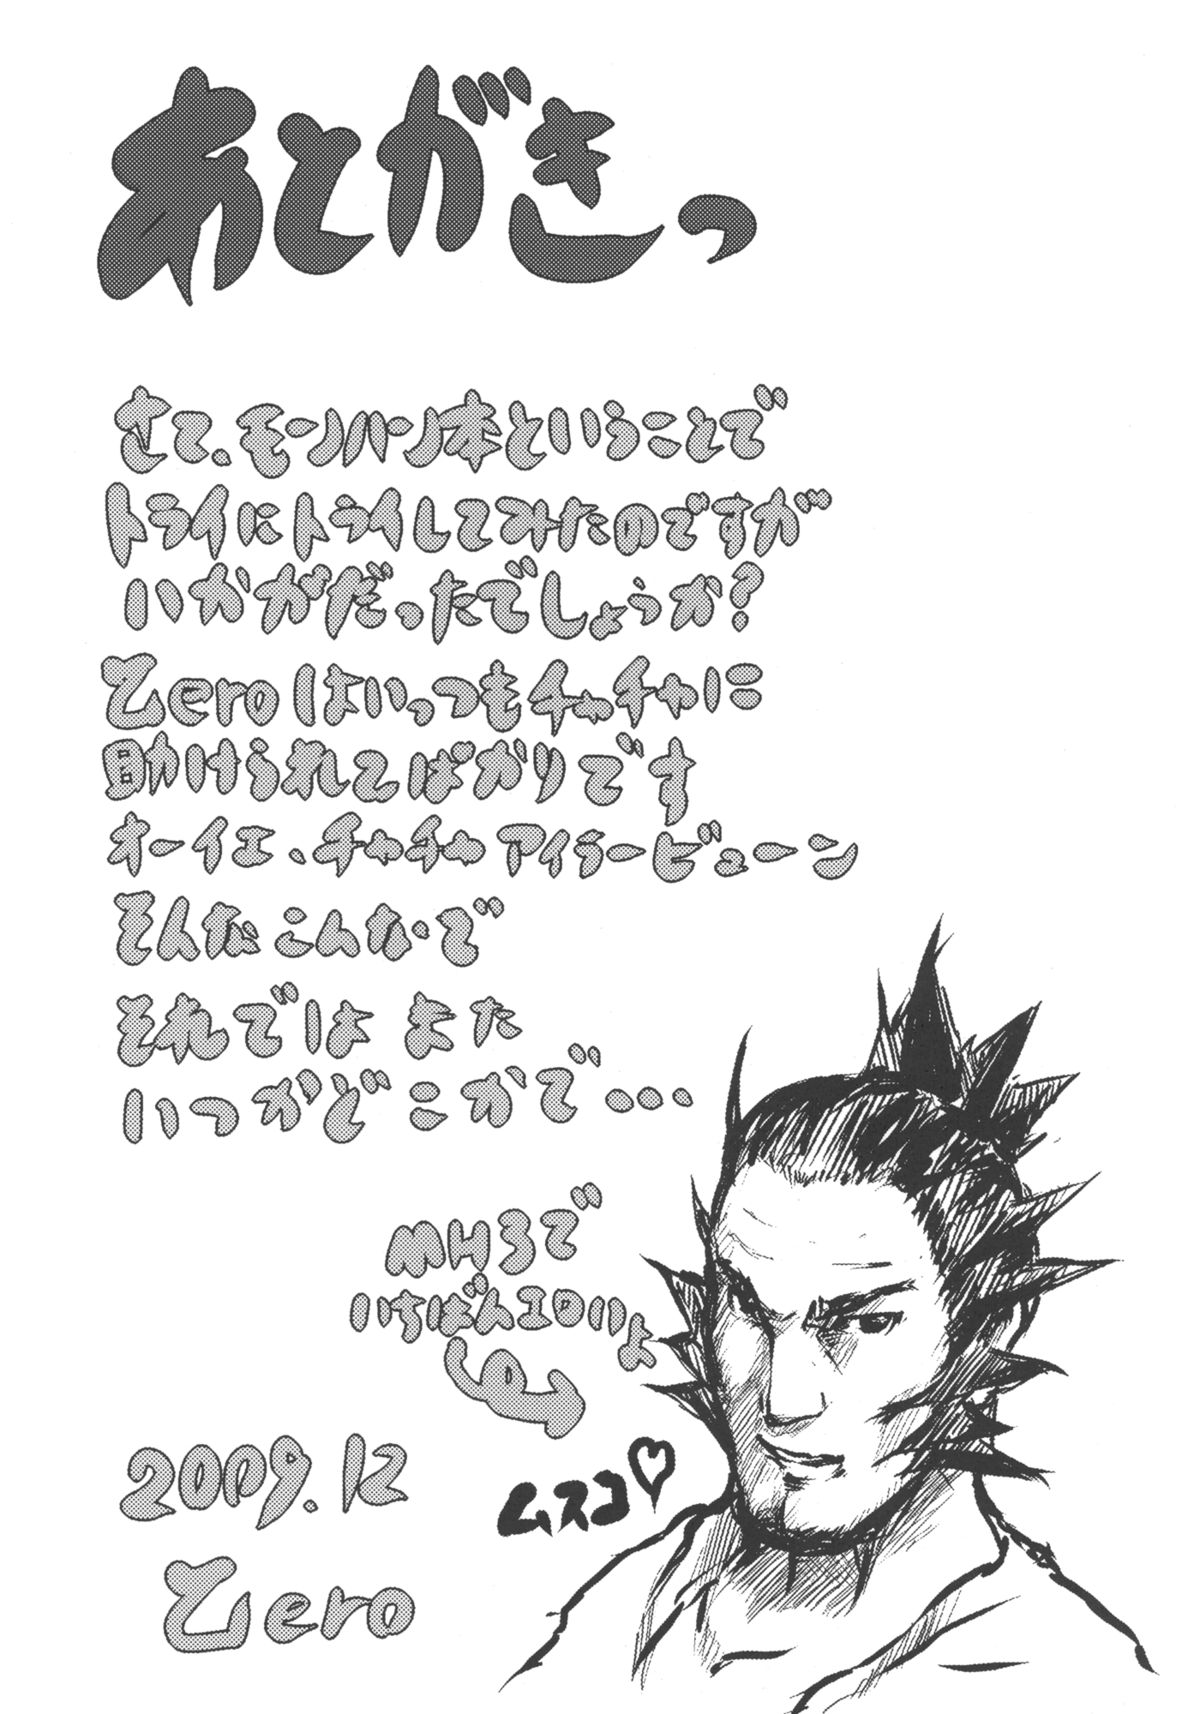 あとがきっ
さて、モンハン本ということで
トライにトライしてみたのですが
いかがだったでしょうか？
Zeroはいっつもチャチャに
助けられてばかりです
オーイエ、チャチャ アイラービューーン
そんな こんなで
それでは また
いつかどこかで…
MH3で
いちばんエロいよ
ムスコ♡
2009.12
Zero